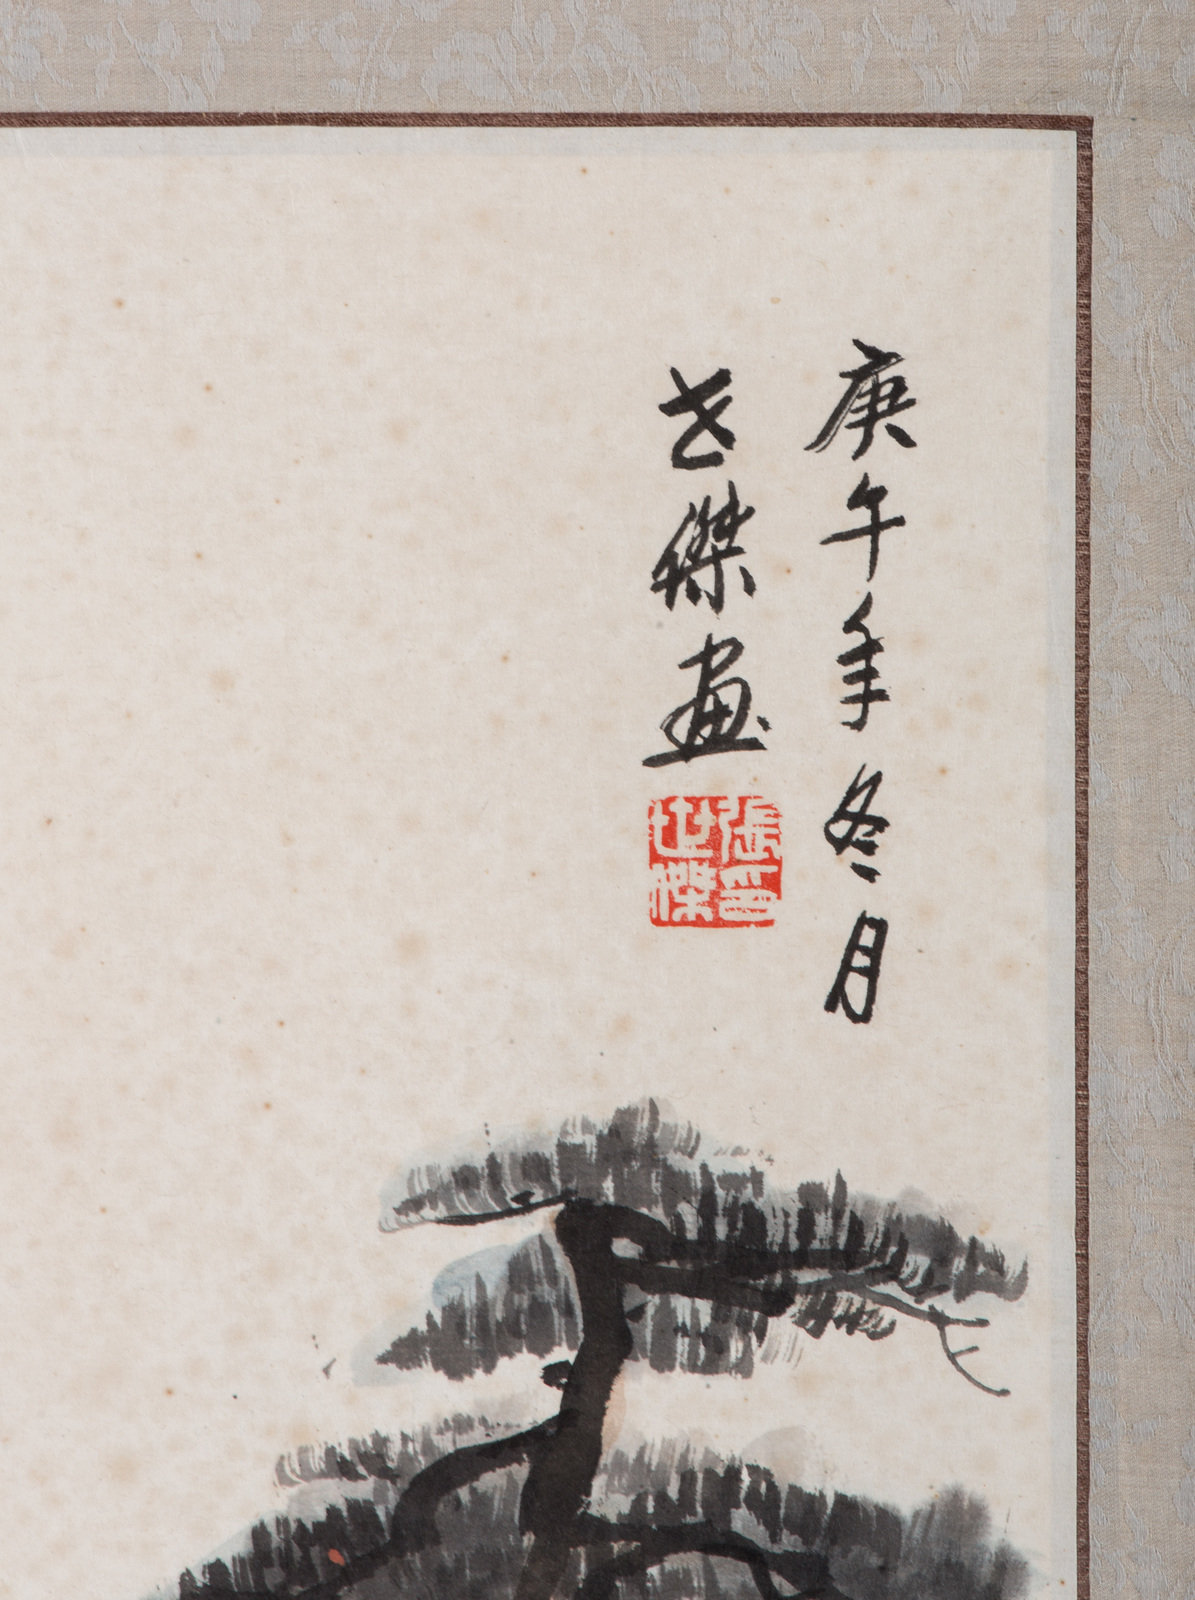 庚午年冬月
世傑画
張印
世傑